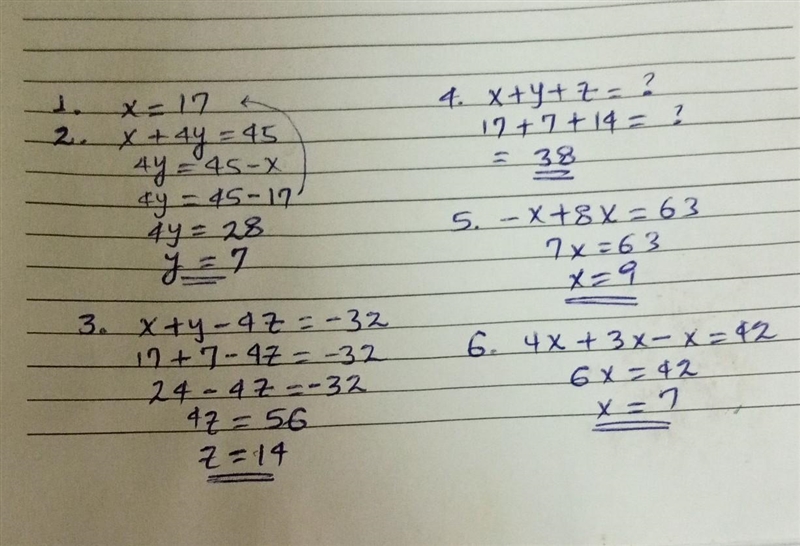 1. x = 17
2. x + 4y = 45
4y = 45 - x
4y = 45 - 17
4y = 28
y = 7
3. x + y - 4z = -32
17 + 7 - 4z = -32
24 - 4z = -32
4z = 56
z = 14
4. x + y + z = ?
17 + 7 + 14 = ?
= 38
5. -x + 8x = 63
7x = 63
x = 9
6. 4x + 3x - x = 42
6x = 42
x = 7